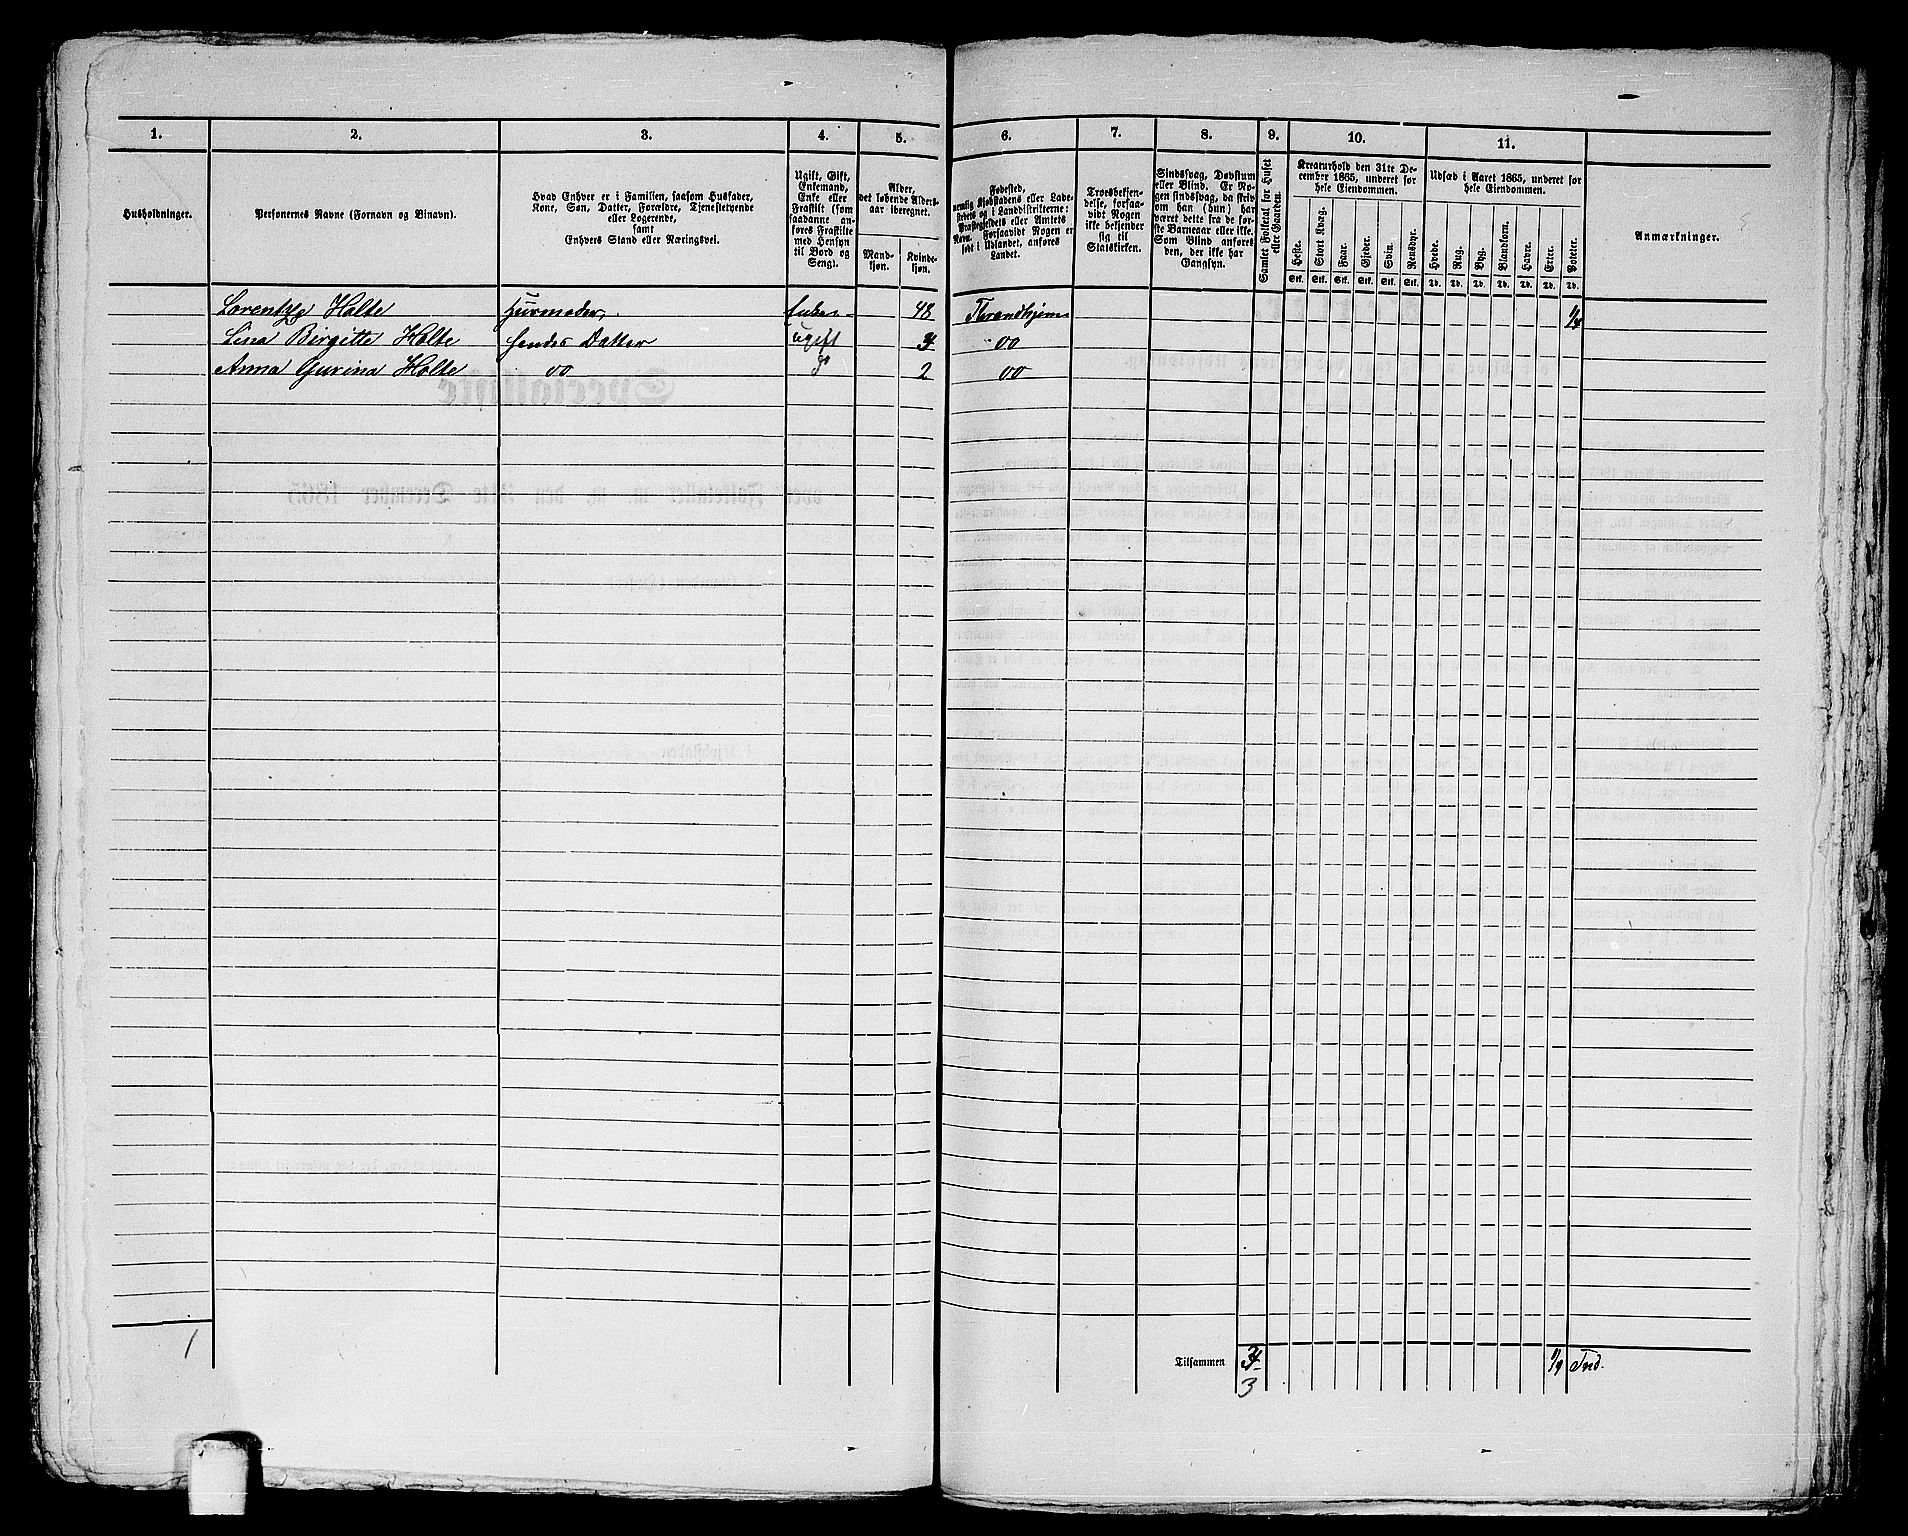 1. 2. 3. 4. 5. 6. 7. 8. 9. 10. 11.
Husholdninger.
Personernes Navne (Fornavn og Binavn).
Hvad Enhver er i Familien, saasom Husfader,
Kone, Søn, Datter, Forældre, Tjenestetyende
eller Logerende,
samt
Enhvers Stand eller Næringsvei.
Ugift, Gift,
Enkemand,
Enke eller
Fraskilt (som
saadanne an-
føres Fraskilte
med Hensyn
til Bord og
Seng).
Alder,
det løbende Alders-
aar iberegnet.
Mand-
kjøn.
Kvinde-
kjøn.
Fødested,
nemlig Kjøbstadens eller Lade-
stedets og i Landdistrikterne:
Præstegjeldets eller Amtets
Navn. Forsaavidt Nogen er
født i Udlandet, anføres
Landet.
Troesbekjen-
delse, forsaa-
vidt Nogen
ikke bekjender
sig til
Statskirken.
Sindssvag, Døvstum
eller Blind. Er No-
gen sindssvag, da skriv
om han (hun) har
været dette fra de før-
ste Barneaar eller ikke.
Som Blind anføres
den, der ikke har
Gangsyn.
Samlet Folketal for Huset
eller Gaarden.
Kreaturhold den 31te De-
cember 1865, underet for
hele Eiendommen.
Heste. Stort Kvæg. Faar. Gjeder. Svin. Rensdyr.
Stk. Stk. Stk. Stk. Stk. Stk.
Udsæd i Aaret 1865, underet for
hele Eiendommen.
Hvede. Rug. Byg. Blandkorn. Havre. Erter. Poteter.
Td. Td. Td. Td. Td. Td. Td.
Anmærkninger.
Holte Huusmoder Enke 48 Throndhjem 1/4
Lina Birgitte Holte hendes Datter ugift do
Anna Gurina Holte do do 2 do
1
Tilsammen
3
Tnd.